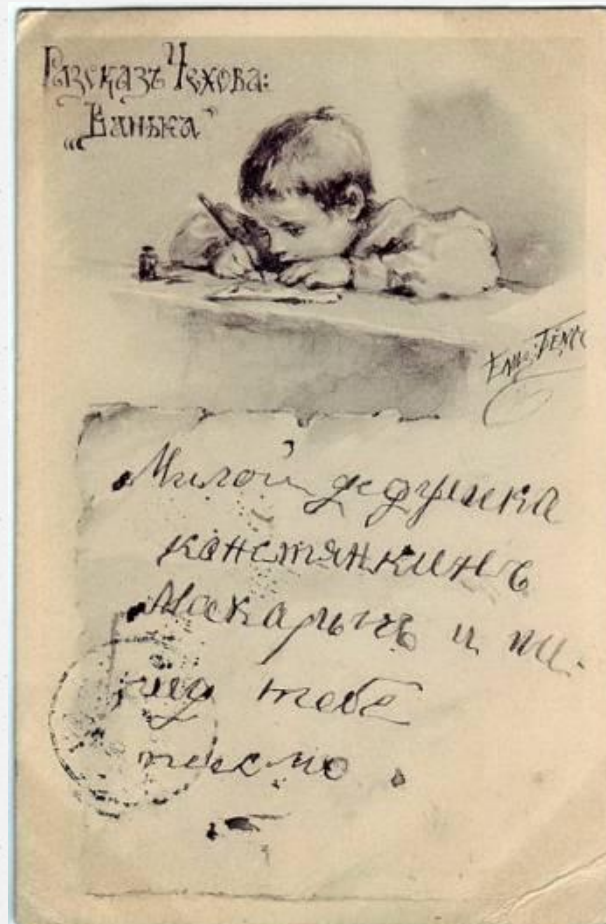 Разсказъ Чехова:
„Ванька"
Елиз. Бёмъ
Милой дедушка
констянкинъ
Макарычъ и пи-
шу тебѣ
письмо.